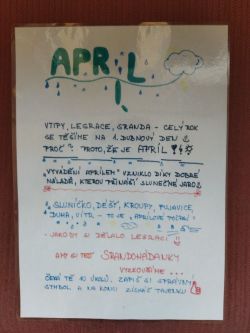 APRIL
VTIPY, LEGRACE, ŠRANDA - CELÝ ROK
SE TĚŠÍME NA 1. DUBNOVÝ DEN
PROČ? PROTO, ŽE JE APRÍL!
"VYVÁDĚNÍ APRÍLEM" VZNIKLO DÍKY DOBRÉ
NÁLADĚ, KTEROU PŘINÁŠÍ SLUNEČNÉ JARO
SLUNÍČKO, DÉŠŤ, KROUPY, PLJAVICE,
DUHA, VÍTR - TO JE "APRÍLOVÉ POČASÍ"
- JAKOBY SI DĚLALO LEGRACI
AMY SI TEĎ SRANDOHÁDANKY
VYZKOUŠÍME ...
ČEKÁ TĚ 10 ÚKOLŮ. ZAPIŠ SI SPRÁVNÝ
SYMBOL A NA KONCI ZÍSKÁŠ TAJENKU